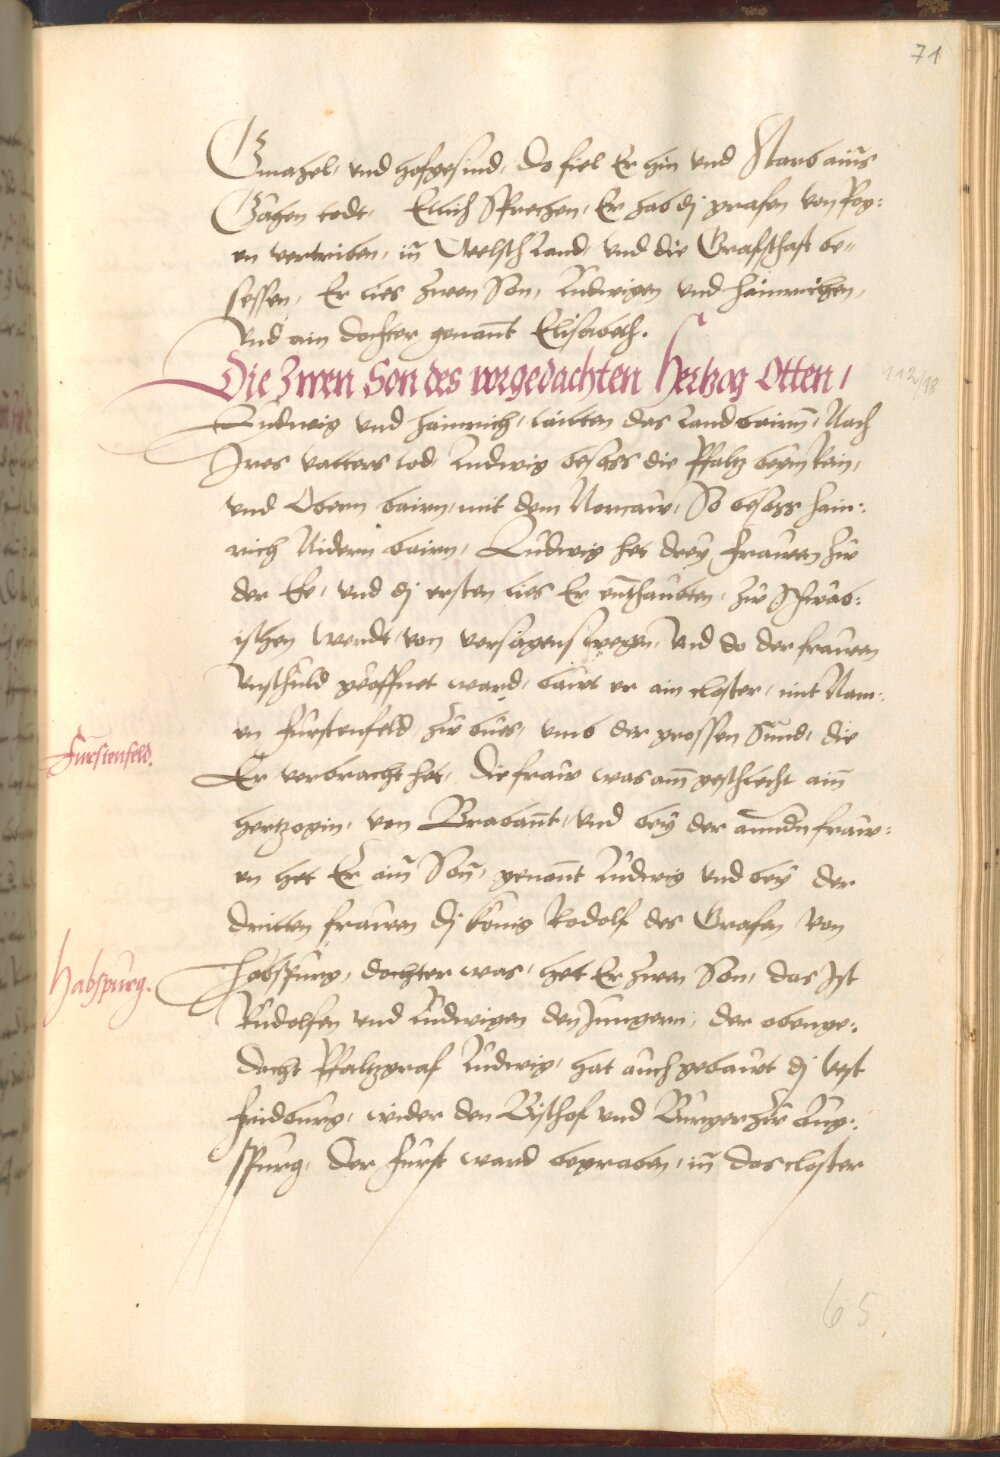 71
Gmahel, vnd hofgesind, Do fiel Er hin vnd Starb ains
Gähen tods, Etlich Sprechen, Er hab dj grafen von Bog:
en vertriben, in Welsch Land, vnd die Grafschaft be„
sessen, Er lies zwen Son, Ludwigen vnd Hainrichen,
Vnd ain dochter genant Elisabeth.
Die Zwen Son des vorgedachten Hertzog Otten,
Ludwig vnd Hainrich, tailten das Land bairn, Nach
Ires vatters tod, Ludwig besass die Pfaltz beym Rein,
vnd Obern bairn, mit dem Norcaw, So besass Hain:
rich Nidern bairn, Ludwig het drey Frawen zw
der Ee, vnd dj ersten lies Er enthaubten, zw Schwäb:
ischen Werdt, von versagens wegen, Vnd do der frawen
Vnschuld geoffnet ward, bawt er ain closter, mit Nam:
en Fürstenfeld, zw bues, vmb der grossen Sünd, die
Er verbracht het, Die fraw was am geschlecht ain
Hertzogin, von Brabant, vnd bey der anndn fraw:
en het Er ain Son, genant Ludwig vnd bey der
dritten frawen dj König Rodolf des Grafen von
Habspurg, dochter was, het Er zwen Son, das Ist
Rudolfen vnd Ludwigen den Jungern, der obenge:
dacht Pfaltzgraf Ludwig, hat auch gebawt dj Vest
Fridburg, wider den Bischof vnd Burger zw Aug:
spurg, Der Fürst ward begraben, in das closter
Fürstenfeld.
Habspurg.
65